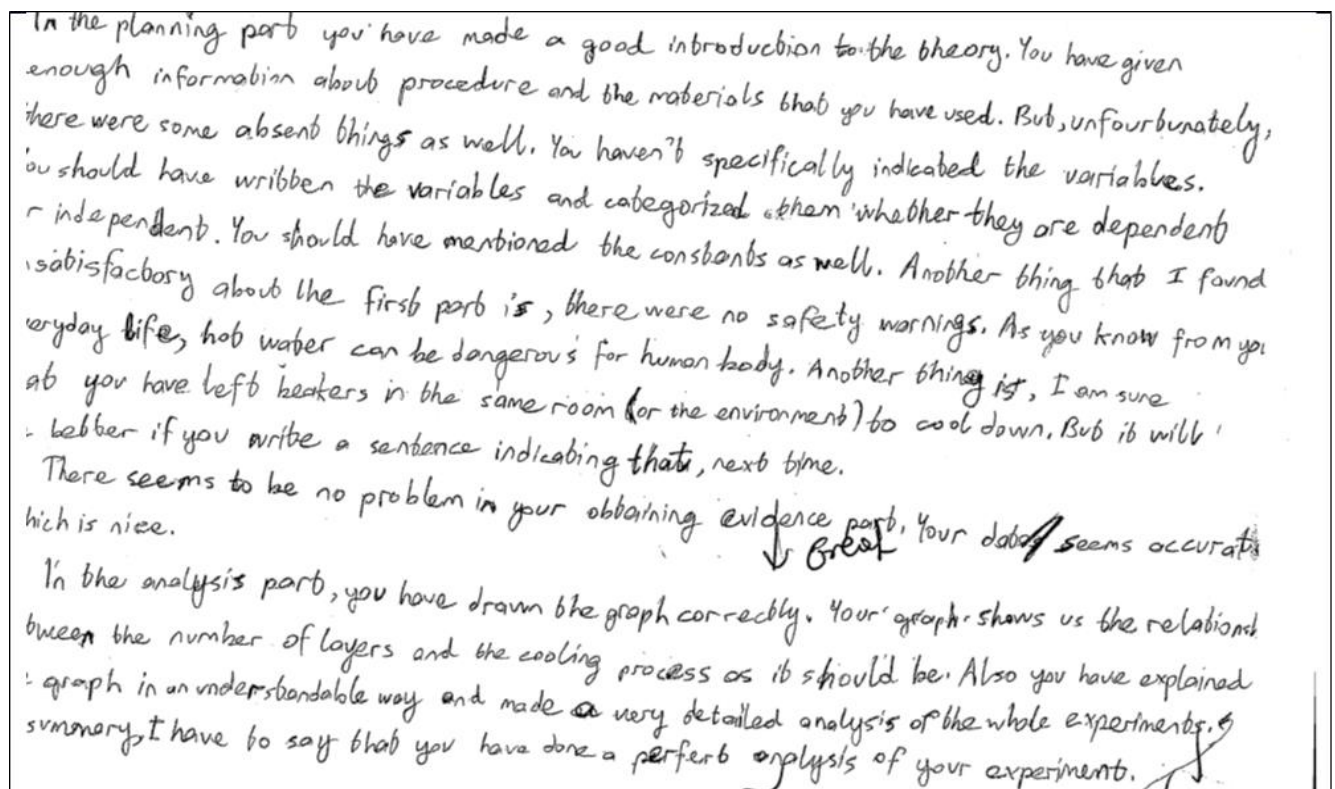 In the planning part you have made a good introduction to the theory. You have given
enough information about procedure and the materials that you have used. But, unfourtunately,
there were some absent things as well. You haven't specifically indicated the variables.
ou should have written the variables and categorized them whether they are dependent
r independent. You should have mentioned the constants as well. Another thing that I found
satisfactory about the first part is, there were no safety warnings. As you know from you
eryday life, hot water can be dangerous for human body. Another thing is, I am sure
at you have left beakers in the same room (or the environment) to cool down. But it will
better if you write a sentence indicating that, next time.
There seems to be no problem in your obtaining evidence part. Your data seems accurat
hich is nice.
Great
In the analysis part, you have drawn the graph correctly. Your graph shows us the relationsh
tween the number of layers and the cooling process as it should be. Also you have explained
graph in an understandable way and made a very detailed analysis of the whole experiments.
summary, I have to say that you have done a perfert analysis of your experiment.